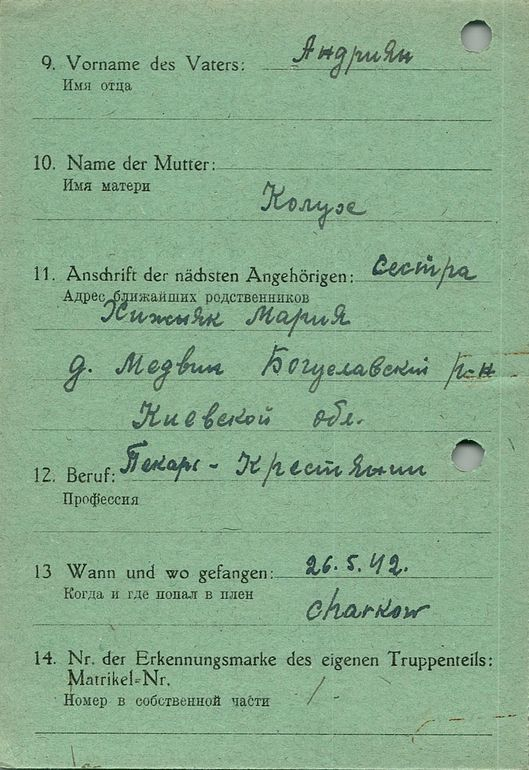 9. Vorname des Vaters: Андриян
Имя отца
10. Name der Mutter:
Имя матери
Колуже
11. Anschrift der nächsten Angehörigen: сестра
Адрес ближайших родственников
Хижняк Мария
д. Медвин Богуславскій р-н
Киевской обл.
12. Beruf: Пекарь - Крестьянин
Профессия
13 Wann und wo gefangen: 26.5.42.
Когда и где попал в плен
Charkow
14. Nr. der Erkennungsmarke des eigenen Truppenteils:
Matrikel-Nr.
Номер в собственной части /-